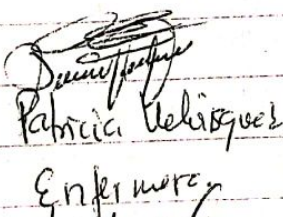 Patricia Velásquez
Enfermera